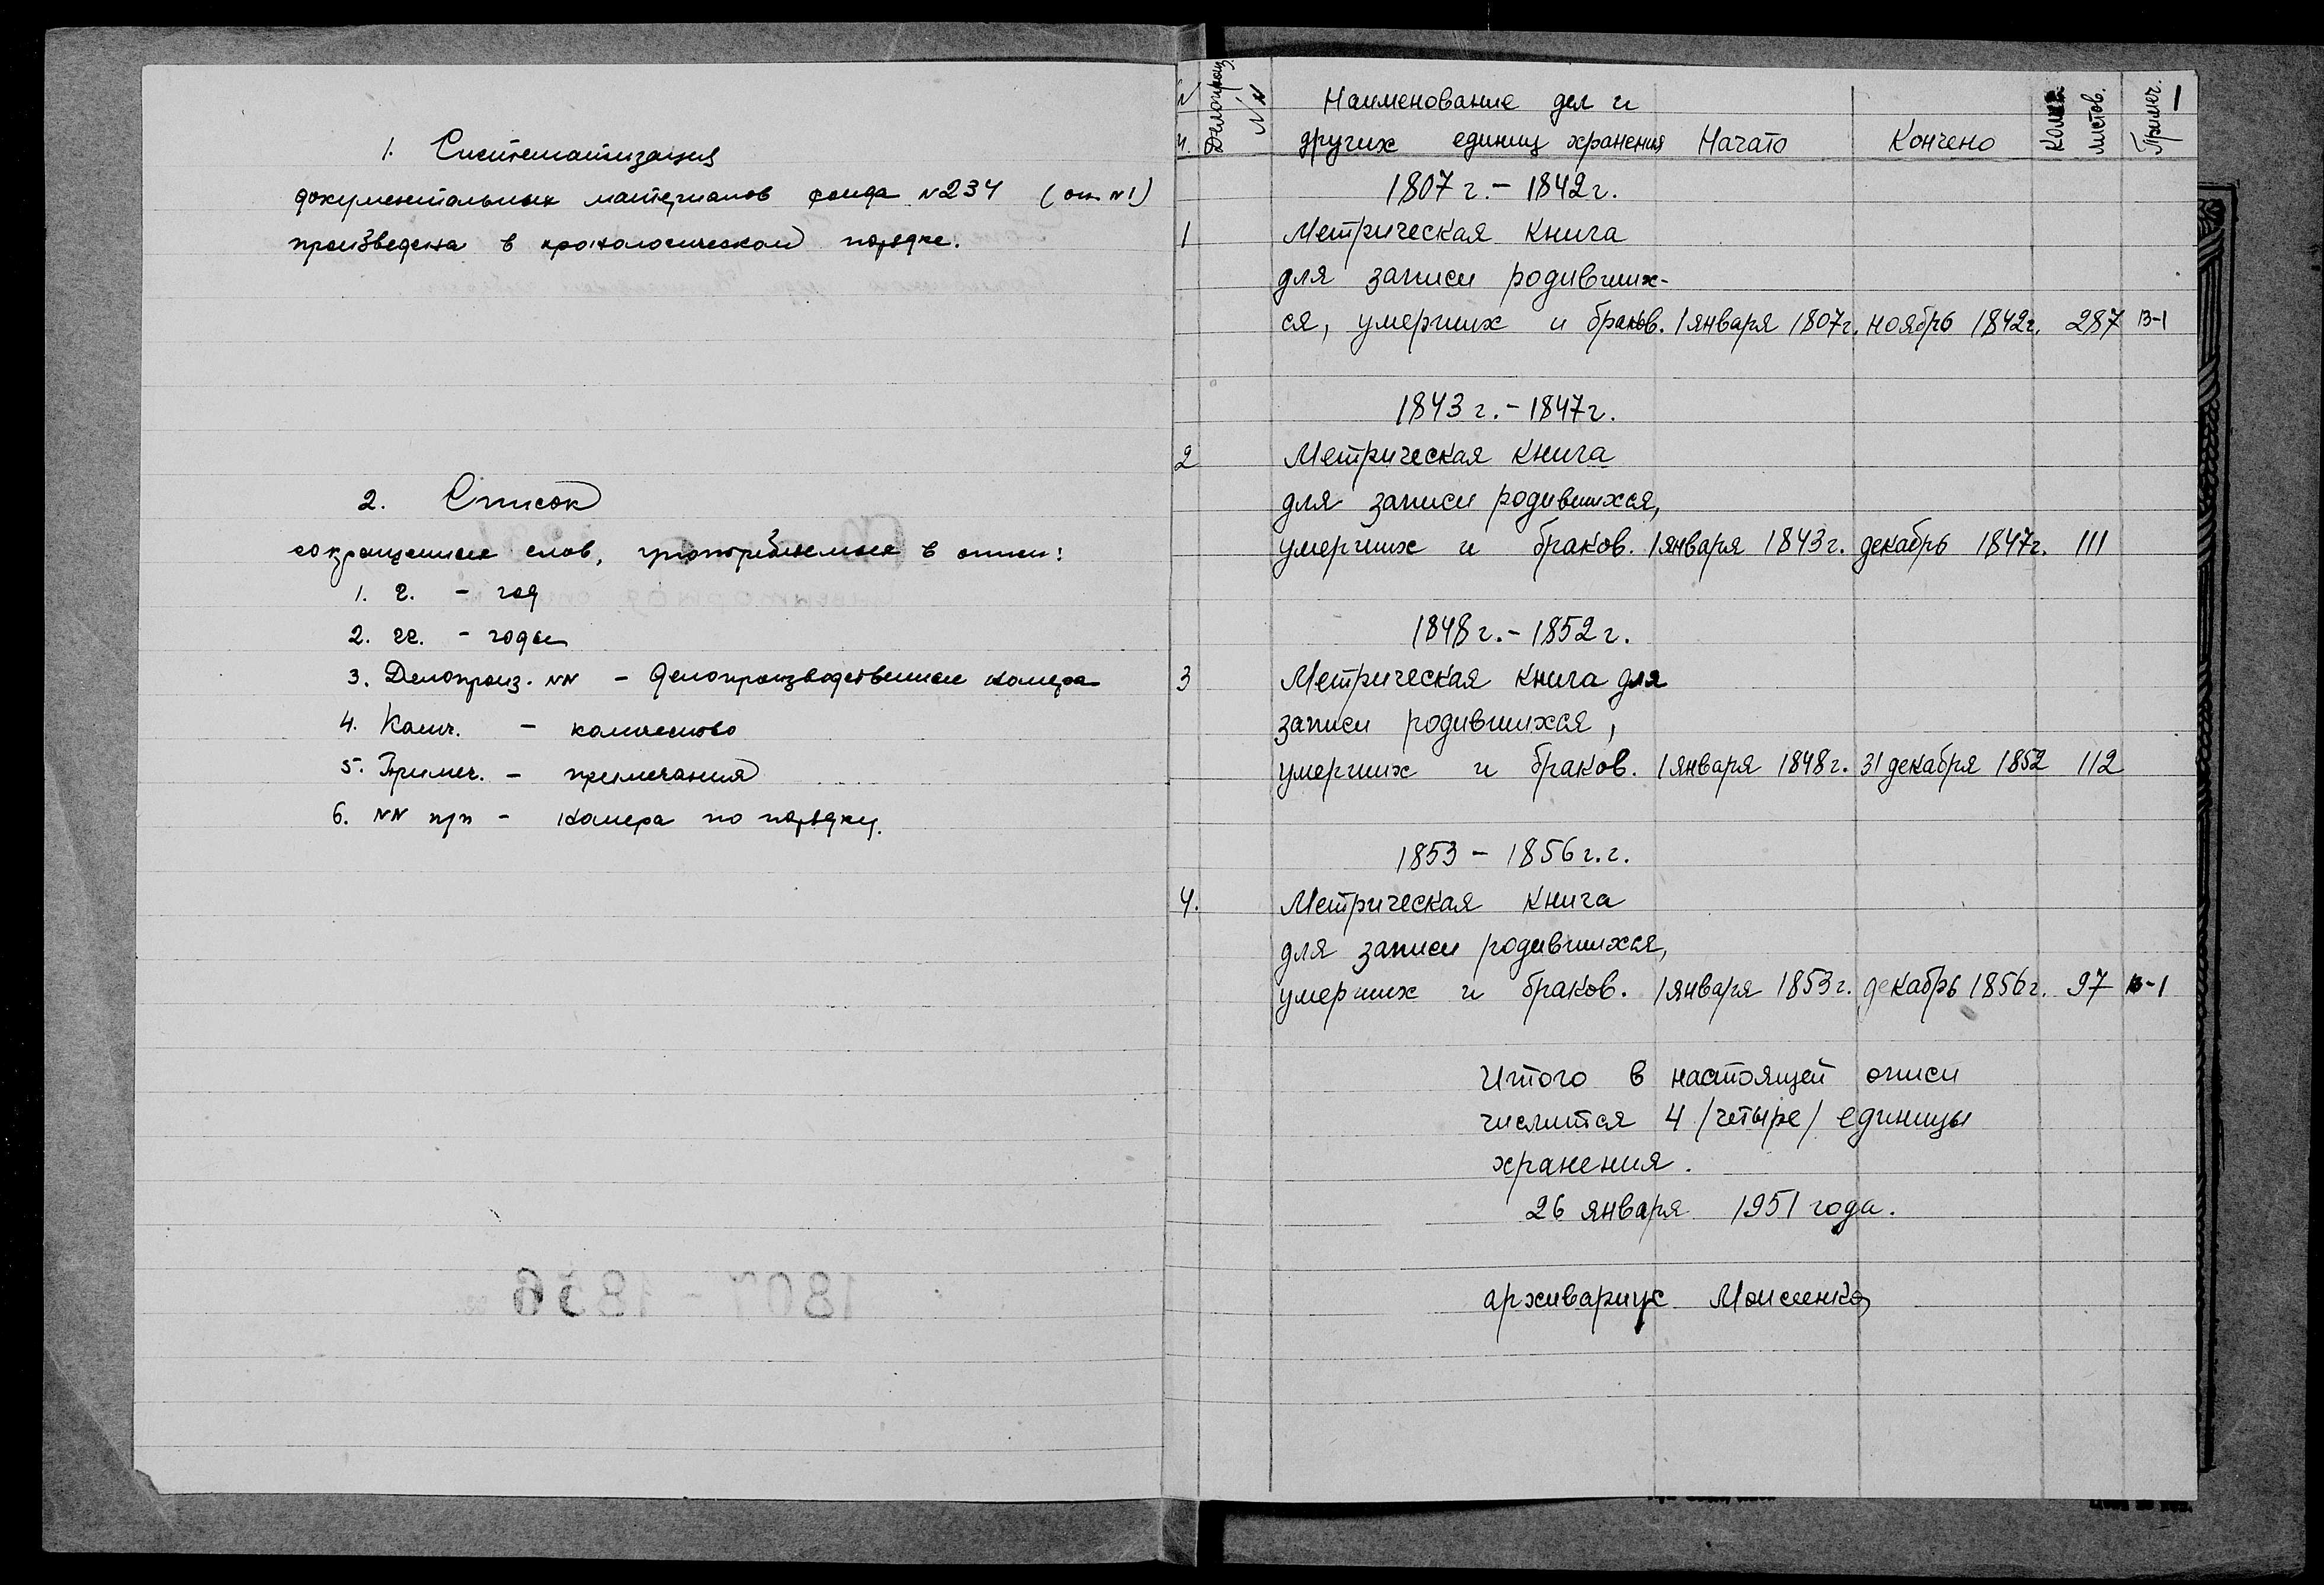 1. Систематизация
документальных материалов фонда N234 (оп. N1)
произведена в хронологическом порядке.
2. Список
сокращенных слов, употребляемых в описи:
1. г. - год
2. гг. - годы
3. Делопроиз. NN - делопроизводственные номера
4. Колич. - количество
5. Примеч. - примечания
6. NN п/п - номера по порядку.
1
N Делопроиз. Наименование дел и Колич. Примеч.
NN других единиц хранения Начато Кончено листов.
1807 г. - 1842 г.
1 Метрическая книга
для записи родивших-
ся, умерших и браков. 1 января 1807г. ноябрь 1842г. 287 В-1
1843 г. - 1847 г.
2 Метрическая книга
для записи родившихся,
умерших и браков. 1 января 1843г. декабрь 1847г. 111
1848 г. - 1852 г.
3 Метрическая книга для
записи родившихся,
умерших и браков. 1 января 1848г. 31 декабря 1852 112
1853 - 1856 г.г.
4. Метрическая книга
для записи родившихся,
умерших и браков. 1 января 1853г. декабрь 1856г. 97 В-1
Итого в настоящей описи
числится 4 /четыре/ единицы
хранения.
26 января 1951 года.
архивариус Моисеенко
1807 - 1856